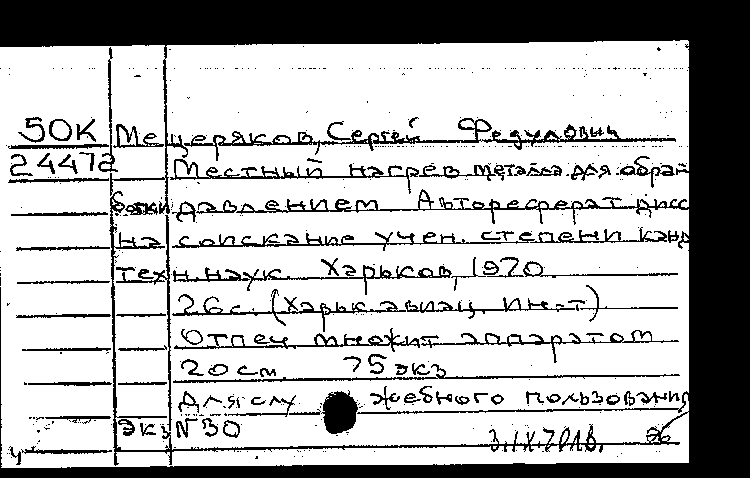 50К Мещеряков, Сергей Федулович
24472 Местный нагрев металла для обра-
ботки давлением Автореферат дисс
на соискание учен. степени канд
техн. наук. Харьков, 1970.
26 с. (Харьк. авиац. ин-т)
Отпеч. множит аппаратом
20 см 75 экз
Для служебного пользования
Экз N 30
3.IX.70